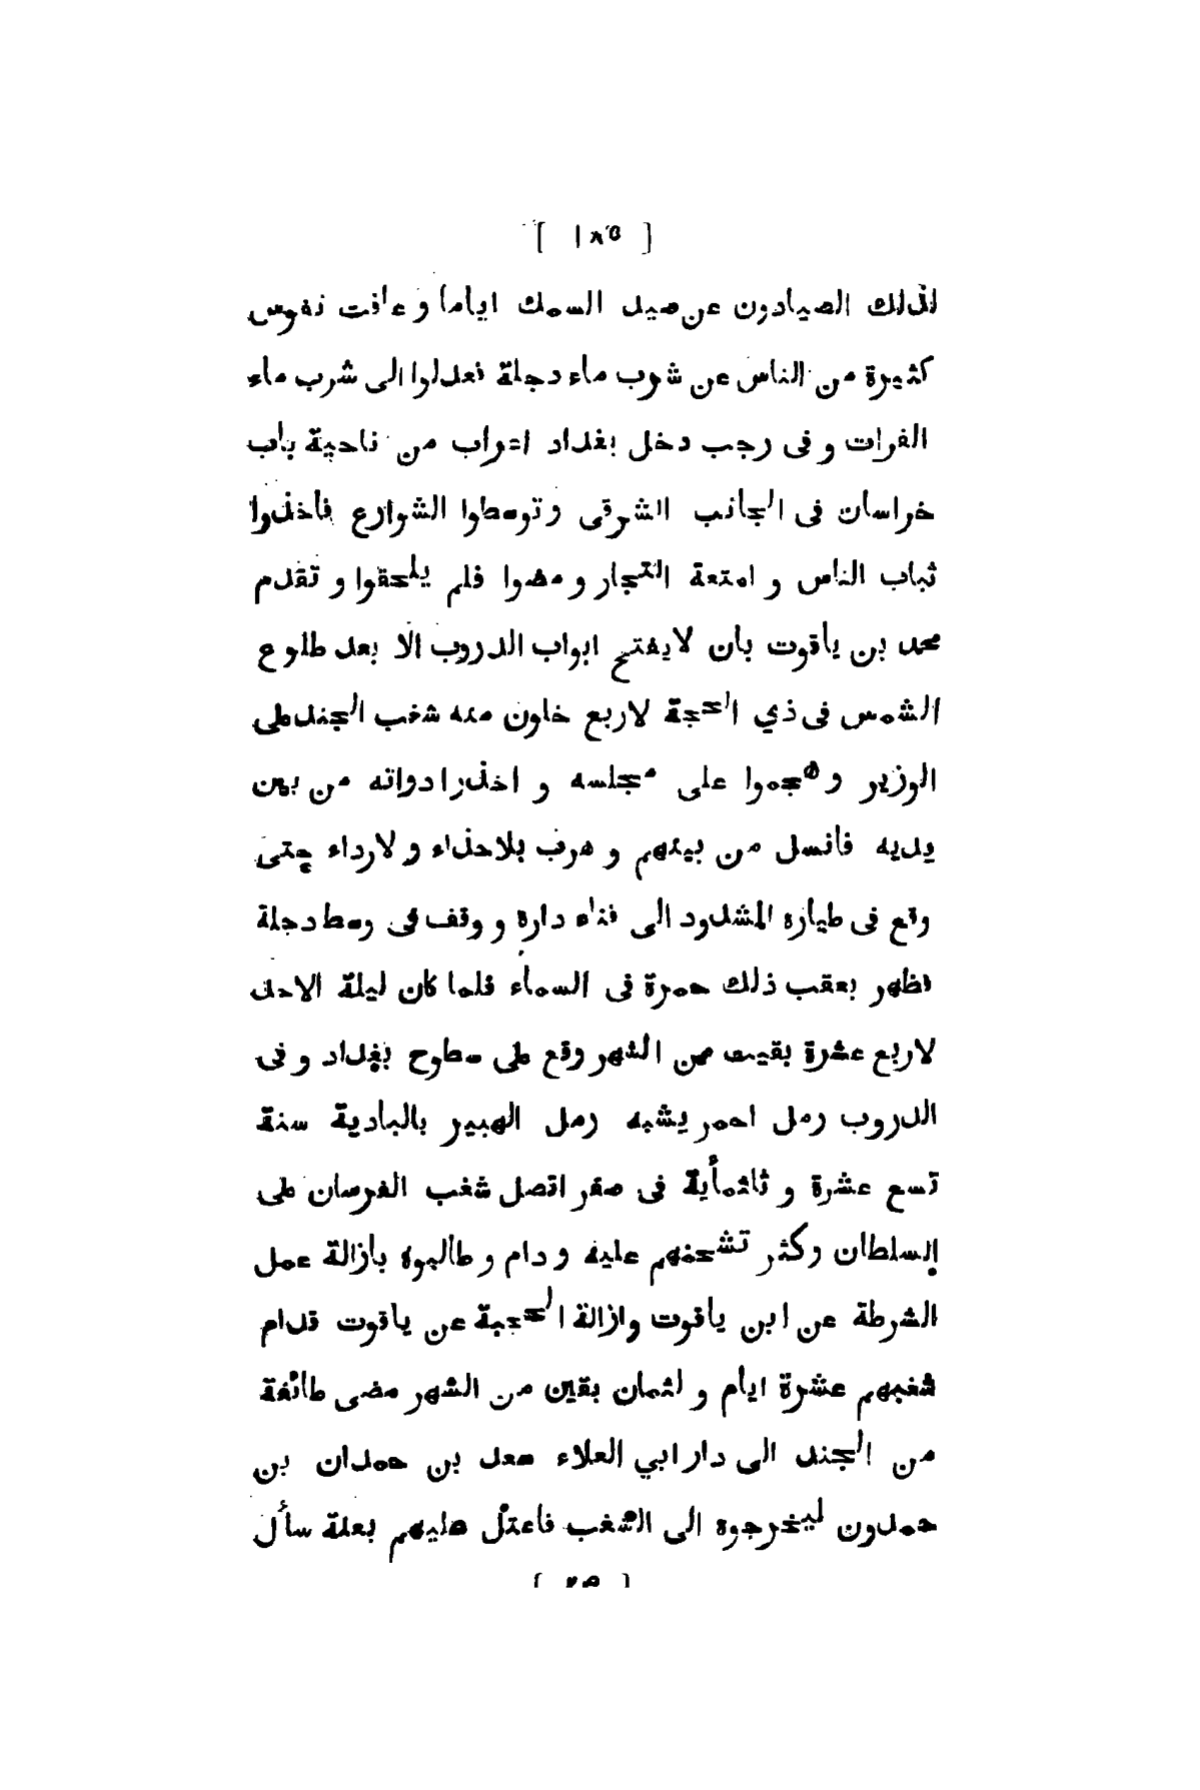 [ ١٨٥ ]
لذلك الصيادون عن صيد السمك اياما و عافت نفوس
كثيرة من الناس عن شرب ماء دجلة فعدلوا الى شرب ماء
الفرات و فى رجب دخل بغداد اعراب من ناحية باب
خراسان فى الجانب الشرقى و توسطوا الشوارع فاخذوا
ثياب الناس و امتعة التجار و مضوا فلم يلحقوا و تقدم
محمد بن ياقوت بان لايفتح ابواب الدروب الا بعد طلوع
الشمس فى ذي الحجة لاربع خلون منه شغب الجند على
الوزير و هجموا على مجلسه و اخذوا دواته من بين
يديه فانسل من بينهم و هرب بلاحذاء و لارداء حتى
وقع فى طياره المشدود الى فناء داره و وقف فى وسط دجلة
فظهر بعقب ذلك حمرة فى السماء فلما كان ليلة الاحد
لاربع عشرة بقيت من الشهر وقع على سطوح بغداد و فى
الدروب رمل احمر يشبه رمل الهبير بالبادية سنة
تسع عشرة و ثلثمأية فى صفر اتصل شغب الفرسان على
السلطان وكثر تشحنهم عليه و دام و طالبوه بازالة عمل
الشرطة عن ابن ياقوت وازالة الحجبة عن ياقوت فدام
شغبهم عشرة ايام و لثمان بقين من الشهر مضى طائفة
من الجند الى دار ابي العلاء سعد بن حمدان بن
حمدون ليخرجوه الى الشغب فاعتل عليهم بعلة سأل
( ٢٥ )